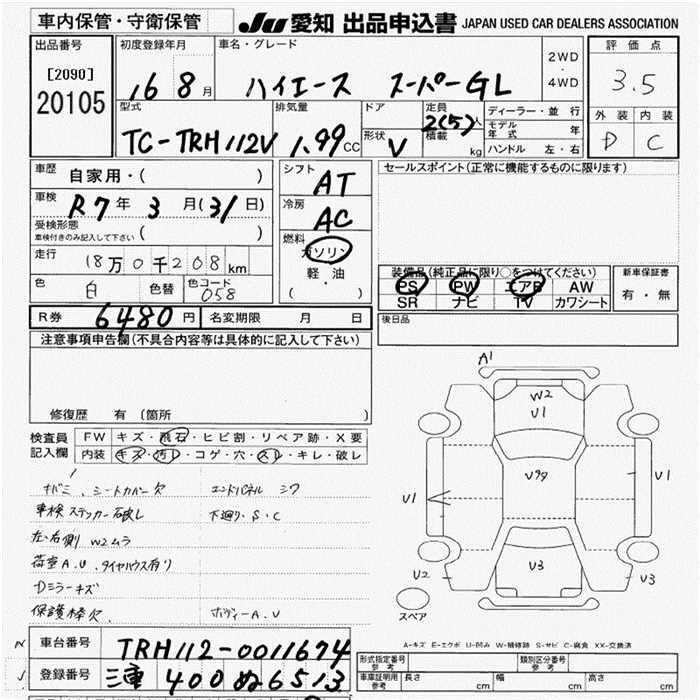 車内保管・守衛保管 JU 愛知 出品申込書 JAPAN USED CAR DEALERS ASSOCIATION
出品番号 初度登録年月 車名・グレード 評価点
[2090] 16 8月 ハイエース スーパーGL 2WD ・ 4WD 3.5
20105
型式 排気量 ドア 定員 2(5)人 ディーラー・並行 外装 内装
TC-TRH112V 1.99CC 形状 V 積載 kg モデル年式 年 D C
ハンドル 左・右
車歴 自家用・( ) シフト AT セールスポイント(正常に機能するものに限ります)
車検 R7年 3月(31日) 冷房 AC
受検形態 車検付きのみ記入して下さい ( )
燃料 ガソリン
走行 18万0千208km 軽油 装備品(純正品に限り○をつけてください) 新車保証書
色 白 色替 色コード 058 ・ ( ) PS PW エアB AW 有・無
SR ナビ TV カワシート
R券 6480円 名変期限 月 日 後日品
注意事項申告欄(不具合内容等は具体的に記入して下さい)
A1
W2
U1
修復歴 有 (箇所
検査員 FW キズ・飛石・ヒビ割・リペア跡・X要
記入欄 内装 キズ・汚レ・コゲ・穴・スレ・キレ・破レ
U99
U1 U1
キバミ、シートカバー欠 エンドパネル シワ
車検ステッカー破レ 下廻り・S・C
左・右側 W2ムラ
荷室A.U、タイヤハウス有り U2 U3 U3
Dミラーキズ
保護棒欠 ボディーA.U スペア
A-キズ E-エクボ U-凹み W-補修跡 S-サビ C-腐食 XX-交換済
車台番号 TRH112-0011674 形式指定番号 参考 類別区分番号 参考
登録番号 三重 400 ぬ 6513 車庫証明用 参考 長さ cm 幅 cm 高さ cm